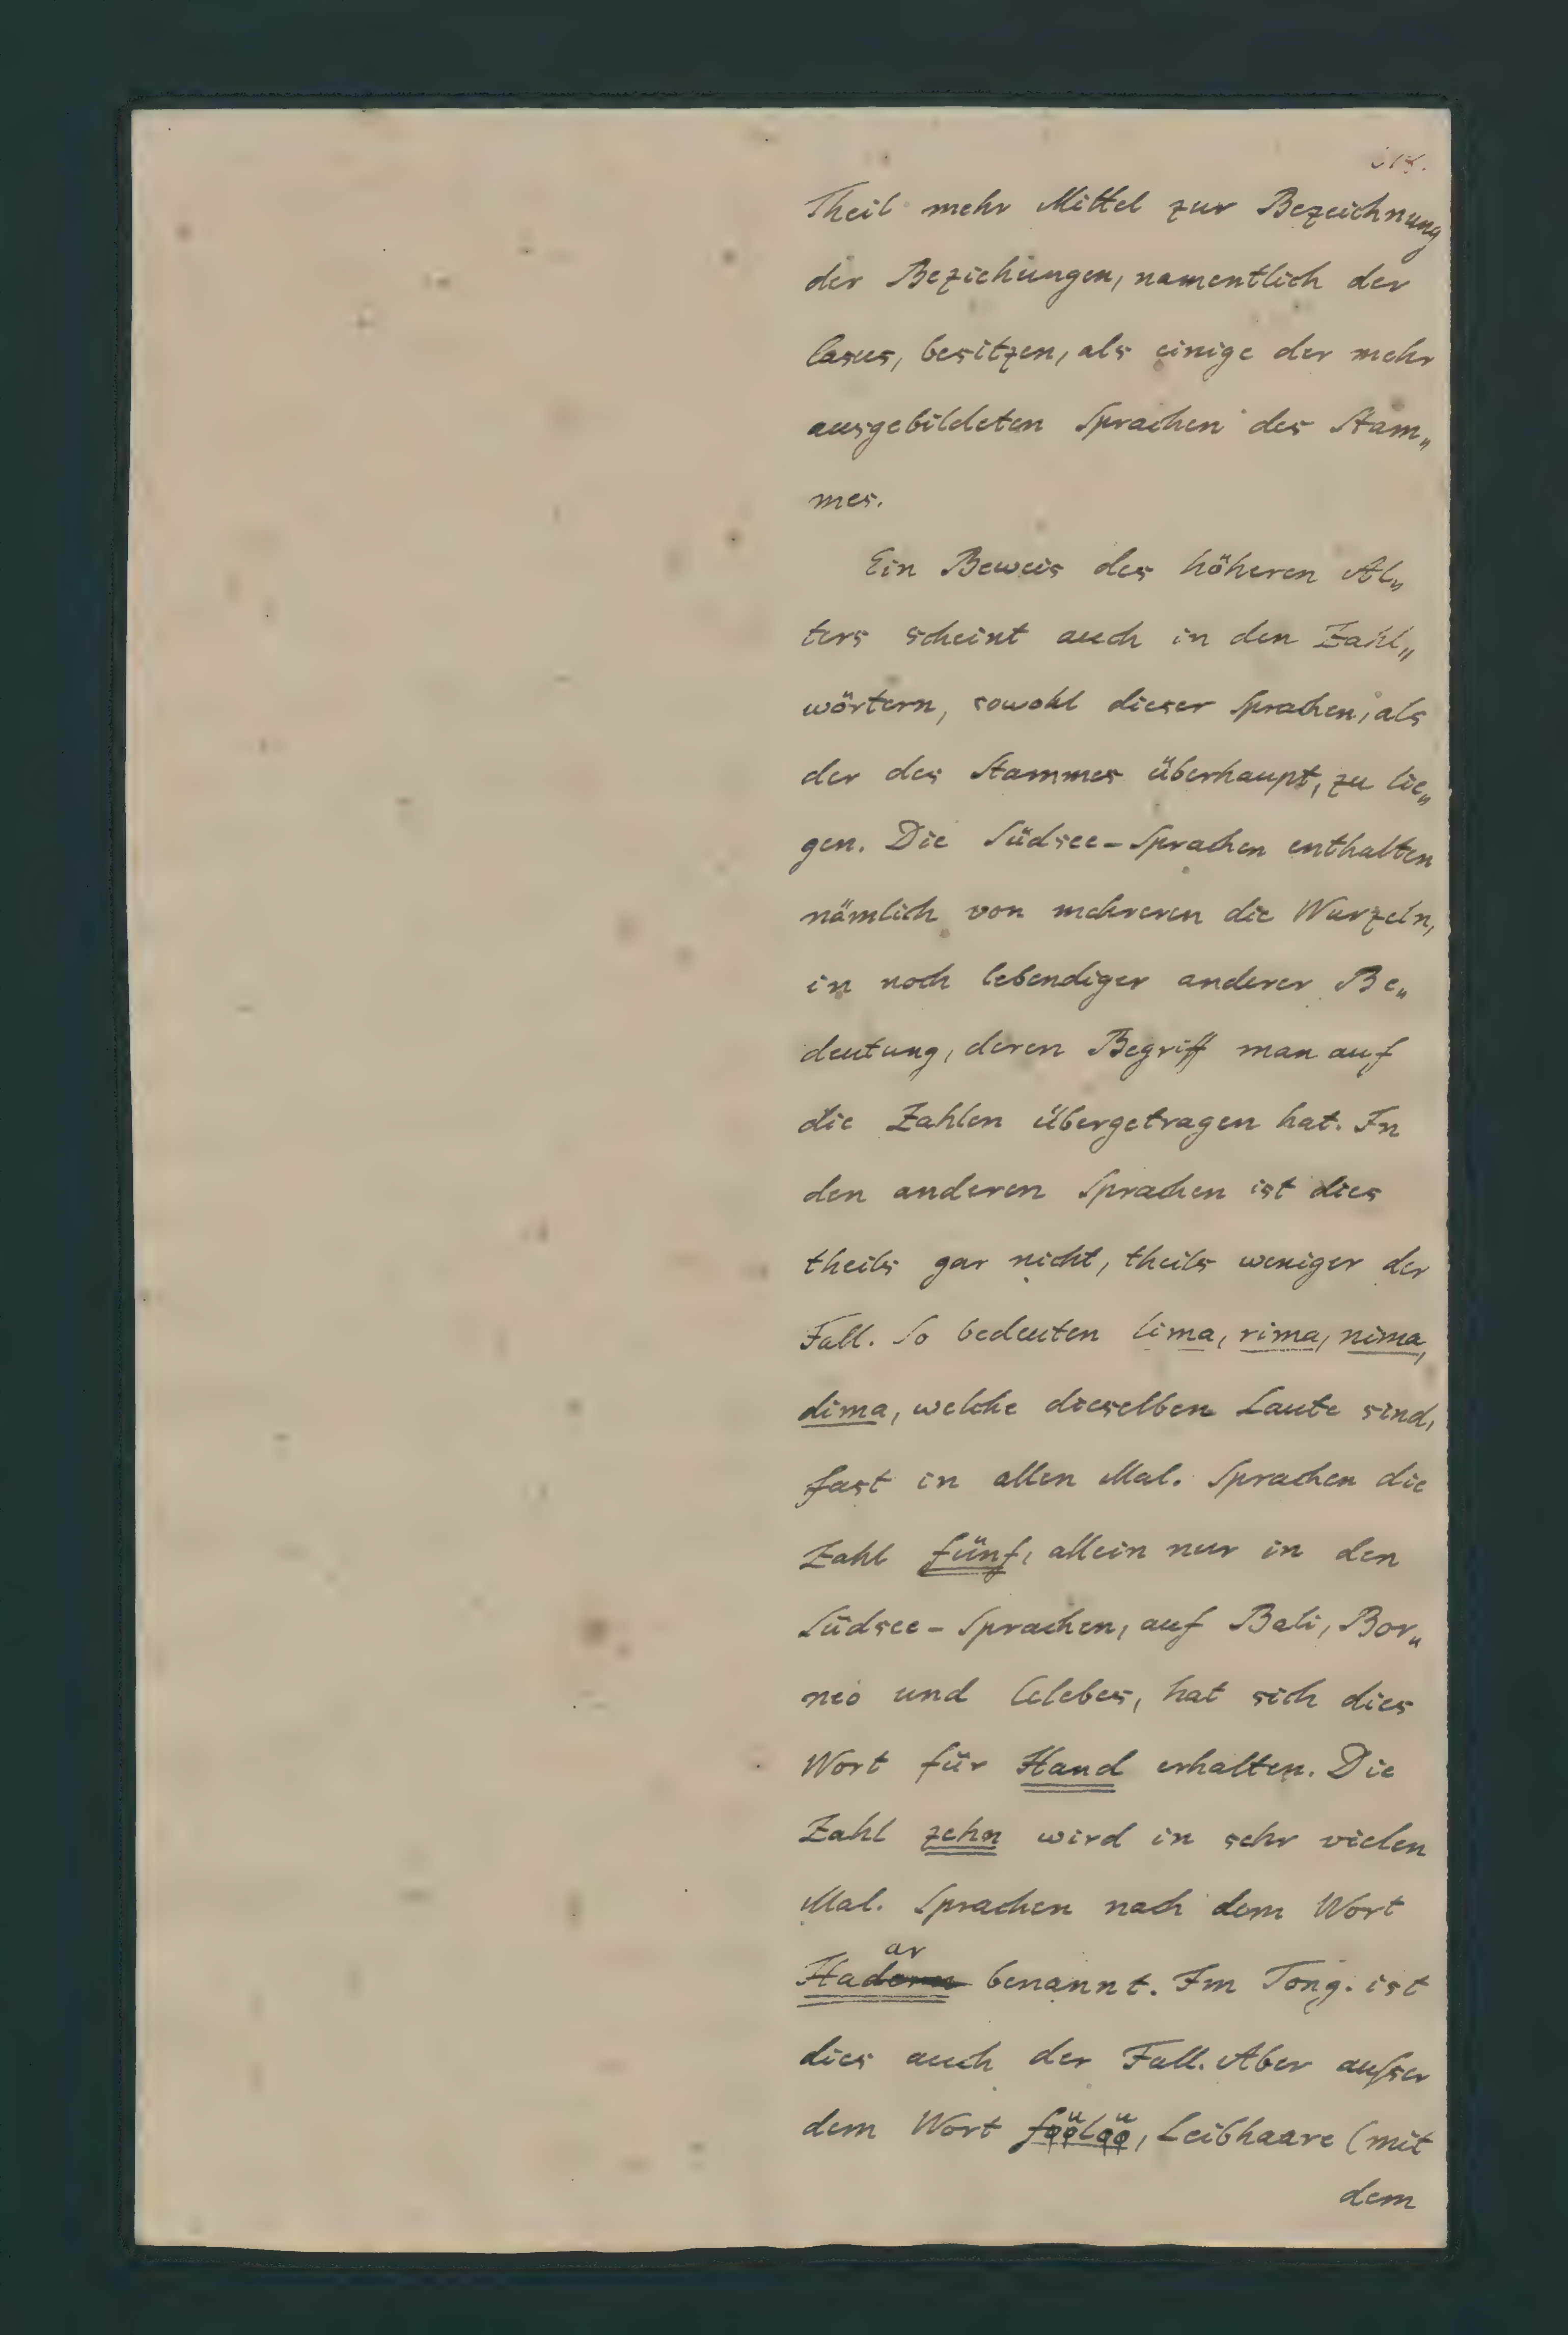 Theil mehr Mittel zur Bezeichnung
der Beziehungen, namentlich der
Casus, besitzen, als einige der mehr
ausgebildeten Sprachen des Stam„
mes.
Ein Beweis des höheren Al„
ters scheint auch in den Zahl„
wörtern, sowohl dieser Sprachen, als
der des Stammes überhaupt, zu lie„
gen. Die Südsee-Sprachen enthalten
nämlich von mehreren die Wurzeln,
in noch lebendiger anderer Be„
deutung, deren Begriff man auf
die Zahlen übergetragen hat. In
den anderen Sprachen ist dies
theils gar nicht, theils weniger der
Fall. So bedeuten lima, rima, nima,
dima, welche dieselben Laute sind,
fast in allen Mal. Sprachen die
Zahl fünf, allein nur in den
Südsee-Sprachen, auf Bali, Bor„
neo und Celebes, hat sich dies
Wort für Hand erhalten. Die
Zahl zehn wird in sehr vielen
Mal. Sprachen nach dem Wort
ar
Hadern benannt. Im Tong. ist
dies auch der Fall. Aber außer
dem Wort Leibhaare (mit
dem